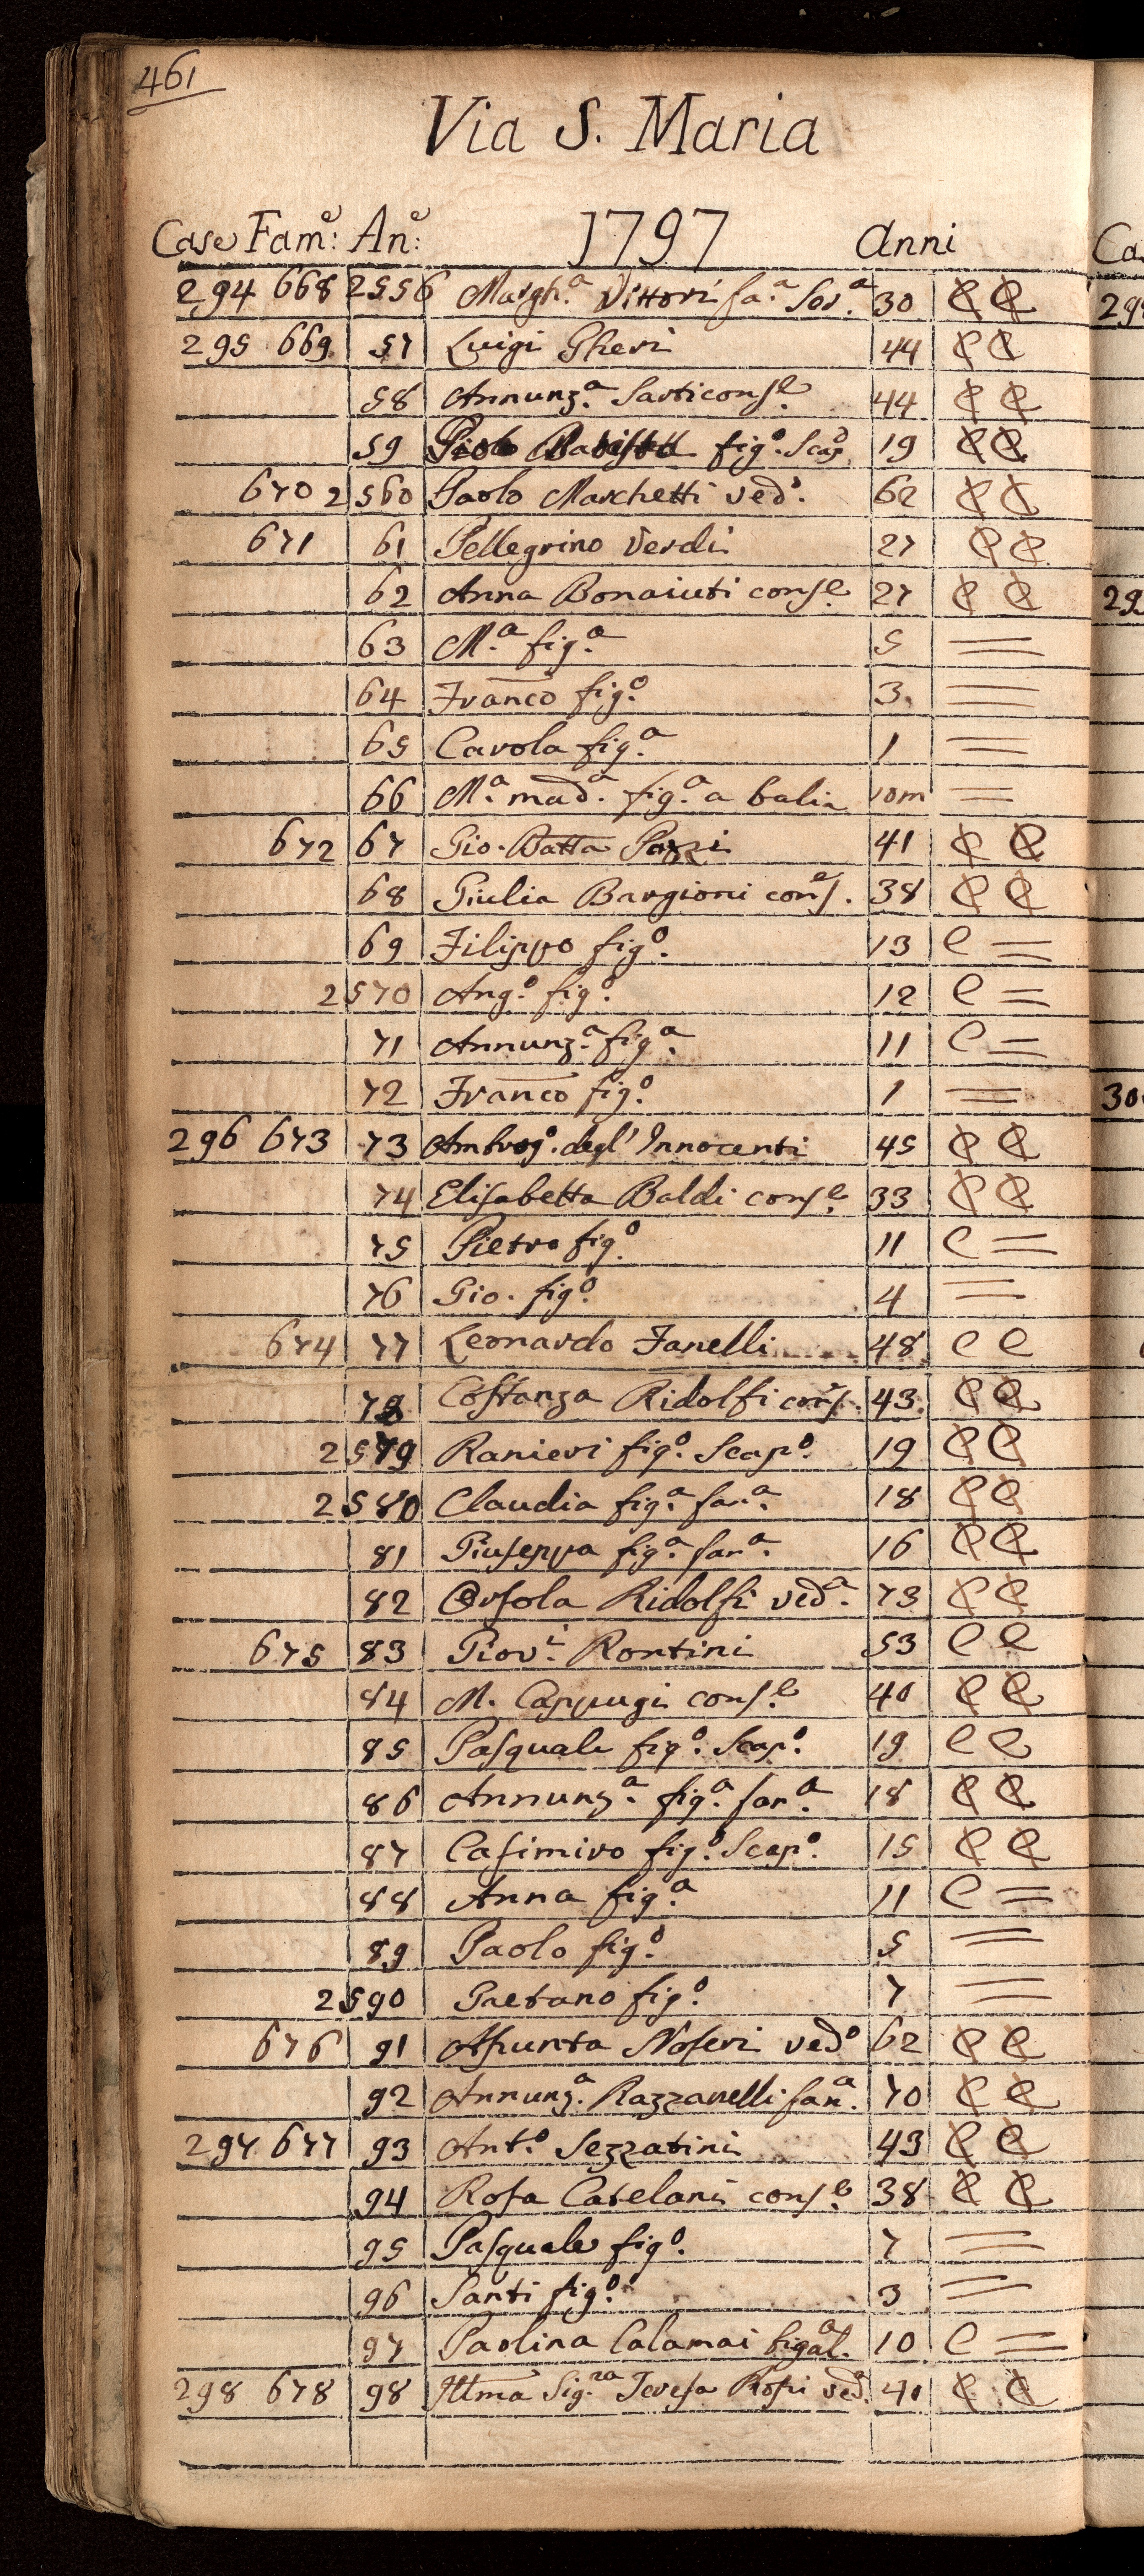 461
Via S. Maria
Case Fam.e An.e 1797 Anni
294 668 2556 Margh.a Vittori fa.a Ser.a 30 C C
295 669 57 Luigi Gheri 44 C C
58 Annunz.a Sarti cons.e 44 C C
59 fig.o Scap.o 19 C C
670 2560 Paolo Marchetti ved.o 62 C C
671 61 Pellegrino Verdi 27 C C
62 Anna Bonaiuti cons.e 27 C C
63 M.a fig.a 5 =
64 Franco fig.o 3 =
65 Carola fig.a 1 =
66 M.a mad.a fig.a a balia 10m =
672 67 Gio. Batta Pozzi 41 C C
68 Giulia Bargioni cons.e 38 C C
69 Filippo fig.o 13 C =
2570 Ang.o fig.o 12 C =
71 Annunz.a fig.a 11 C =
72 Franco fig.o 1 =
296 673 73 Ambrog.o degl' Innocenti 45 C C
74 Elisabetta Baldi cons.e 33 C C
75 Pietro fig.o 11 C =
76 Gio. fig.o 4 =
674 77 Leonardo Fanelli 48 C C
78 Costanza Ridolfi cons.e 43 C C
2579 Ranieri fig.o Scap.o 19 C C
2580 Claudia fig.a fan.a 18 C C
81 Giuseppa fig.a fan.a 16 C C
82 Orsola Ridolfi ved.a 73 C C
675 83 Giov.i Rontini 53 C C
84 M. Cappugi cons.e 40 C C
85 Pasquale fig.o Scap.o 19 C C
86 Annunz.a fig.a fan.a 18 C C
87 Casimiro fig.o Scap.o 15 C C
88 Anna fig.a 11 C =
89 Paolo fig.o 5 =
2590 Gaetano fig.o 7 =
676 91 Assunta Noferi ved.o 62 C C
92 Annunz.a Razzanelli fan.a 70 C C
297 677 93 Ant.o Sezzatini 43 C C
94 Rosa Catelani cons.e 38 C C
95 Pasquale fig.o 7 =
96 Santi fig.o 3 =
97 Paolina Calamai 10 C =
298 678 98 Illma Sig.ra Teresa Rossi ved.a 40 C C